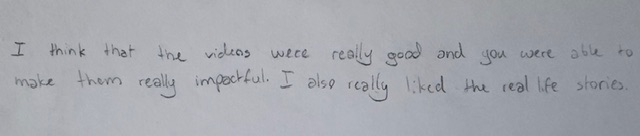 I think that the videos were really good and you were able to
make them really impactful. I also really liked the real life stories.